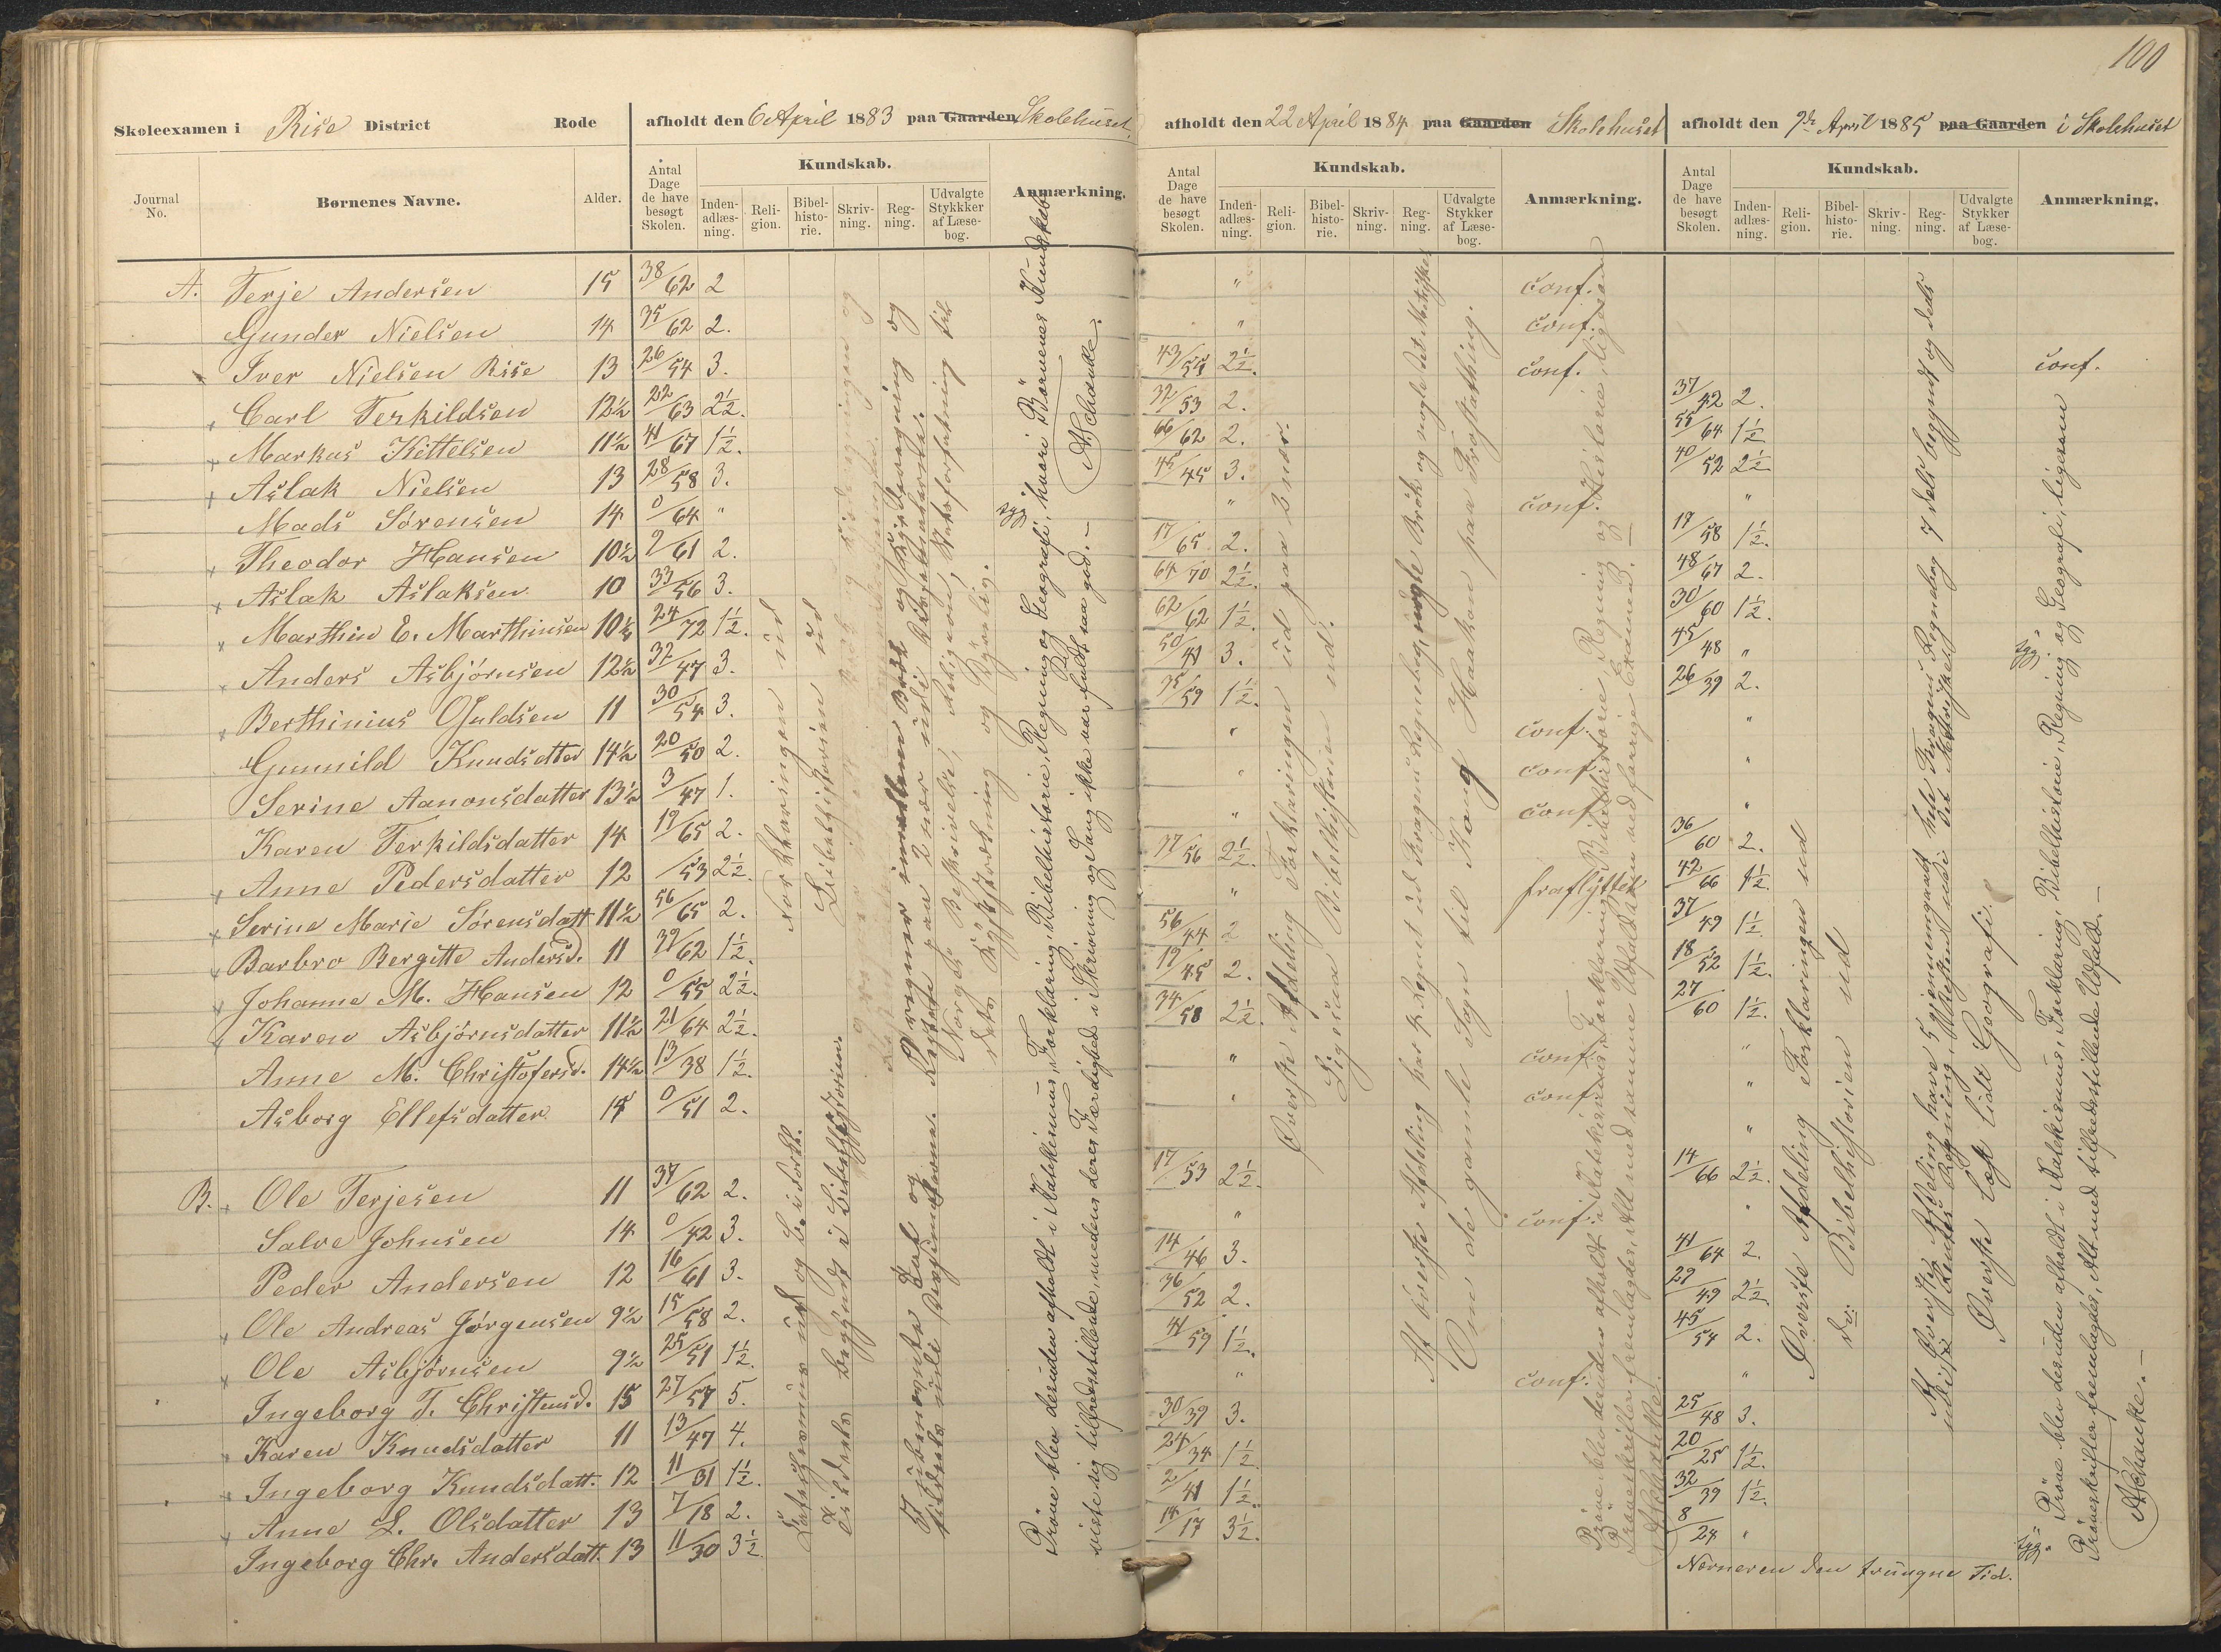 100
Skoleexamen i Rise District Rode
afholdt den 6 April 1883 paa Gaarden Skolehuset
afholdt den 22 April 1884 paa Gaarden Skolehuset
afholdt den 9de April 1885 paa Gaarden i Skolehuset
Journal No. Børnenes Navne. Alder. Antal Dage de have besøgt Skolen. Kundskab. Inden-adlæs-ning. Reli-gion. Bibel-histo-rie. Skriv-ning. Reg-ning. Udvalgte Stykkker af Læse-bog. Anmærkning.
Antal Dage de have besøgt Skolen. Kundskab. Inden-adlæs-ning. Reli-gion. Bibel-histo-rie. Skriv-ning. Reg-ning. Udvalgte Stykker af Læse-bog. Anmærkning.
Antal Dage de have besøgt Skolen. Kundskab. Inden-adlæs-ning. Reli-gion. Bibel-histo-rie. Skriv-ning. Reg-ning. Udvalgte Stykker af Læse-bog. Anmærkning.
A. Terje Andersen 15 38/62 2 " conf.
Gunder Nielsen 14 35/62 2. " conf.
Iver Nielsen Rise 13 26/54 3. 43/55 2½. conf. conf.
Carl Terkildsen 12½ 22/63 2½. 32/53 2. 37/42 2.
Markus Kittelsen 11½ 41/67 1½. 66/62 2. 55/64 1½
Aslak Nielsen 13 28/58 3. 45/45 3. 40/52 2½
Mads Sørensen 14 0/64 " syg " conf. "
Theodor Hansen 10½ 9/61 2. 17/65 2. 17/58 1½.
Aslak Aslaksen 10 33/56 3. 64/70 2½. 48/67 2.
Marthin E. Marthinsen 10½ 24/72 1½. 62/62 1½. 30/60 1½.
Anders Asbjørnsen 12½ 32/47 3. 50/41 3. 45/48 " syg.
Berthinius Ofuldsen 11 30/54 3. 35/59 1½. 26/39 2.
Gunnild Knudsdatter 14½ 20/50 2. " conf. "
Serine Aanonsdatter 13½ 3/47 1. " conf. "
Karen Terkildsdatter 14 19/65 2. " conf. "
Anne Pedersdatter 12 /53 2½. 37/56 2½. 36/60 2.
Serine Marie Sørensdatt 11½ 56/65 2. " fraflyttet 42/66 1½.
Barbro Bergitte Andersd. 11 39/62 1½. 56/44 2 37/49 1½
Johanne M. Hansen 12 0/55 2½. 19/45 2. 18/52 1½.
Karen Asbjørnsdatter 11½ 21/64 2½. 34/58 2½. 27/60 1½.
Anne M. Christofersd. 14½ 13/38 1½. " conf. "
Asborg Ellefsdatter 15 0/51 2. " conf. "
B. Ole Terjesen 11 37/62 2. 17/53 2½. 14/66 2½.
Salve Johnsen 14 0/42 3. " conf. "
Peder Andersen 12 16/61 3. 14/46 3. 41/64 2.
Ole Andreas Jørgensen 9½ 15/58 2. 36/52 2. 29/49 2½
Ole Asbjørnsen 9½ 25/51 1½. 41/59 1½. 45/54 2.
Ingeborg T. Christensd. 15 27/57 5. " conf. "
Karen Knudsdatter 11 13/47 4. 30/39 3. 25/48 3.
Ingeborg Knudsdatt. 12 11/31 1½. 24/34 1½. 20/25 1½.
Anne L. Olsdatter 13 7/18 2. 2/41 1½. 32/39 1½.
Ingeborg Chr. Andersdatt. 13 11/30 3½. 14/17 3½. 8/24 " syg.
den tvungne Tid.
Forklaringen ud
Bibelhistorien ud
Prøve blev desuden afholdt i Katekismus, Forklaring, Bibelhistorie, Regning og Geografi, hvori Børnenes Kundskab
viste sig tilfredsstillende, medens deres Færdighed i Skrivning og Sang ikke var fuldt saa god. —
A. Schanke.
Øverste Afdeling Forklaringen ud paa 3 nær.
Ligesaa Bibelhistorien ud.
Af øverste Afdeling har 4 Regnet ud Fragens Regnebog, nogle Brøk og nogle det Metriske
Om de gamle Sagn til Kong Haakon paa Frostathing.
Prøve blev desuden afholdt i Katekismus, Forklaring, Bibelhistorie, Regning og Historie, ligesom
Prøveskrifter fremlagdes, Alt med samme Udfald som ved forrige Examen. —
A. Schanke.
Øverste Afdeling Forklaringen ud
do: Bibelhistorien ud
Af Øverste Afdeling have 5 gjennemgaaet hele Fragens Regnebog 7 dels begyndt og dels
Øverste læst lidt Geografi.
Prøve blev desuden afholdt i Katekismus, Forklaring, Bibelhistorie, Regning og Geografi, ligesom
Prøveskrifter fremlagdes, Alt med tilfredsstillende Udfald. —
A. Schanke. —